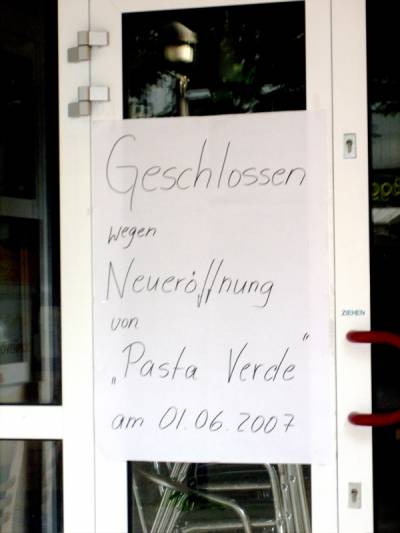 Geschlossen
wegen
Neueröffnung
von
„Pasta Verde"
am 01.06.2007
ZIEHEN